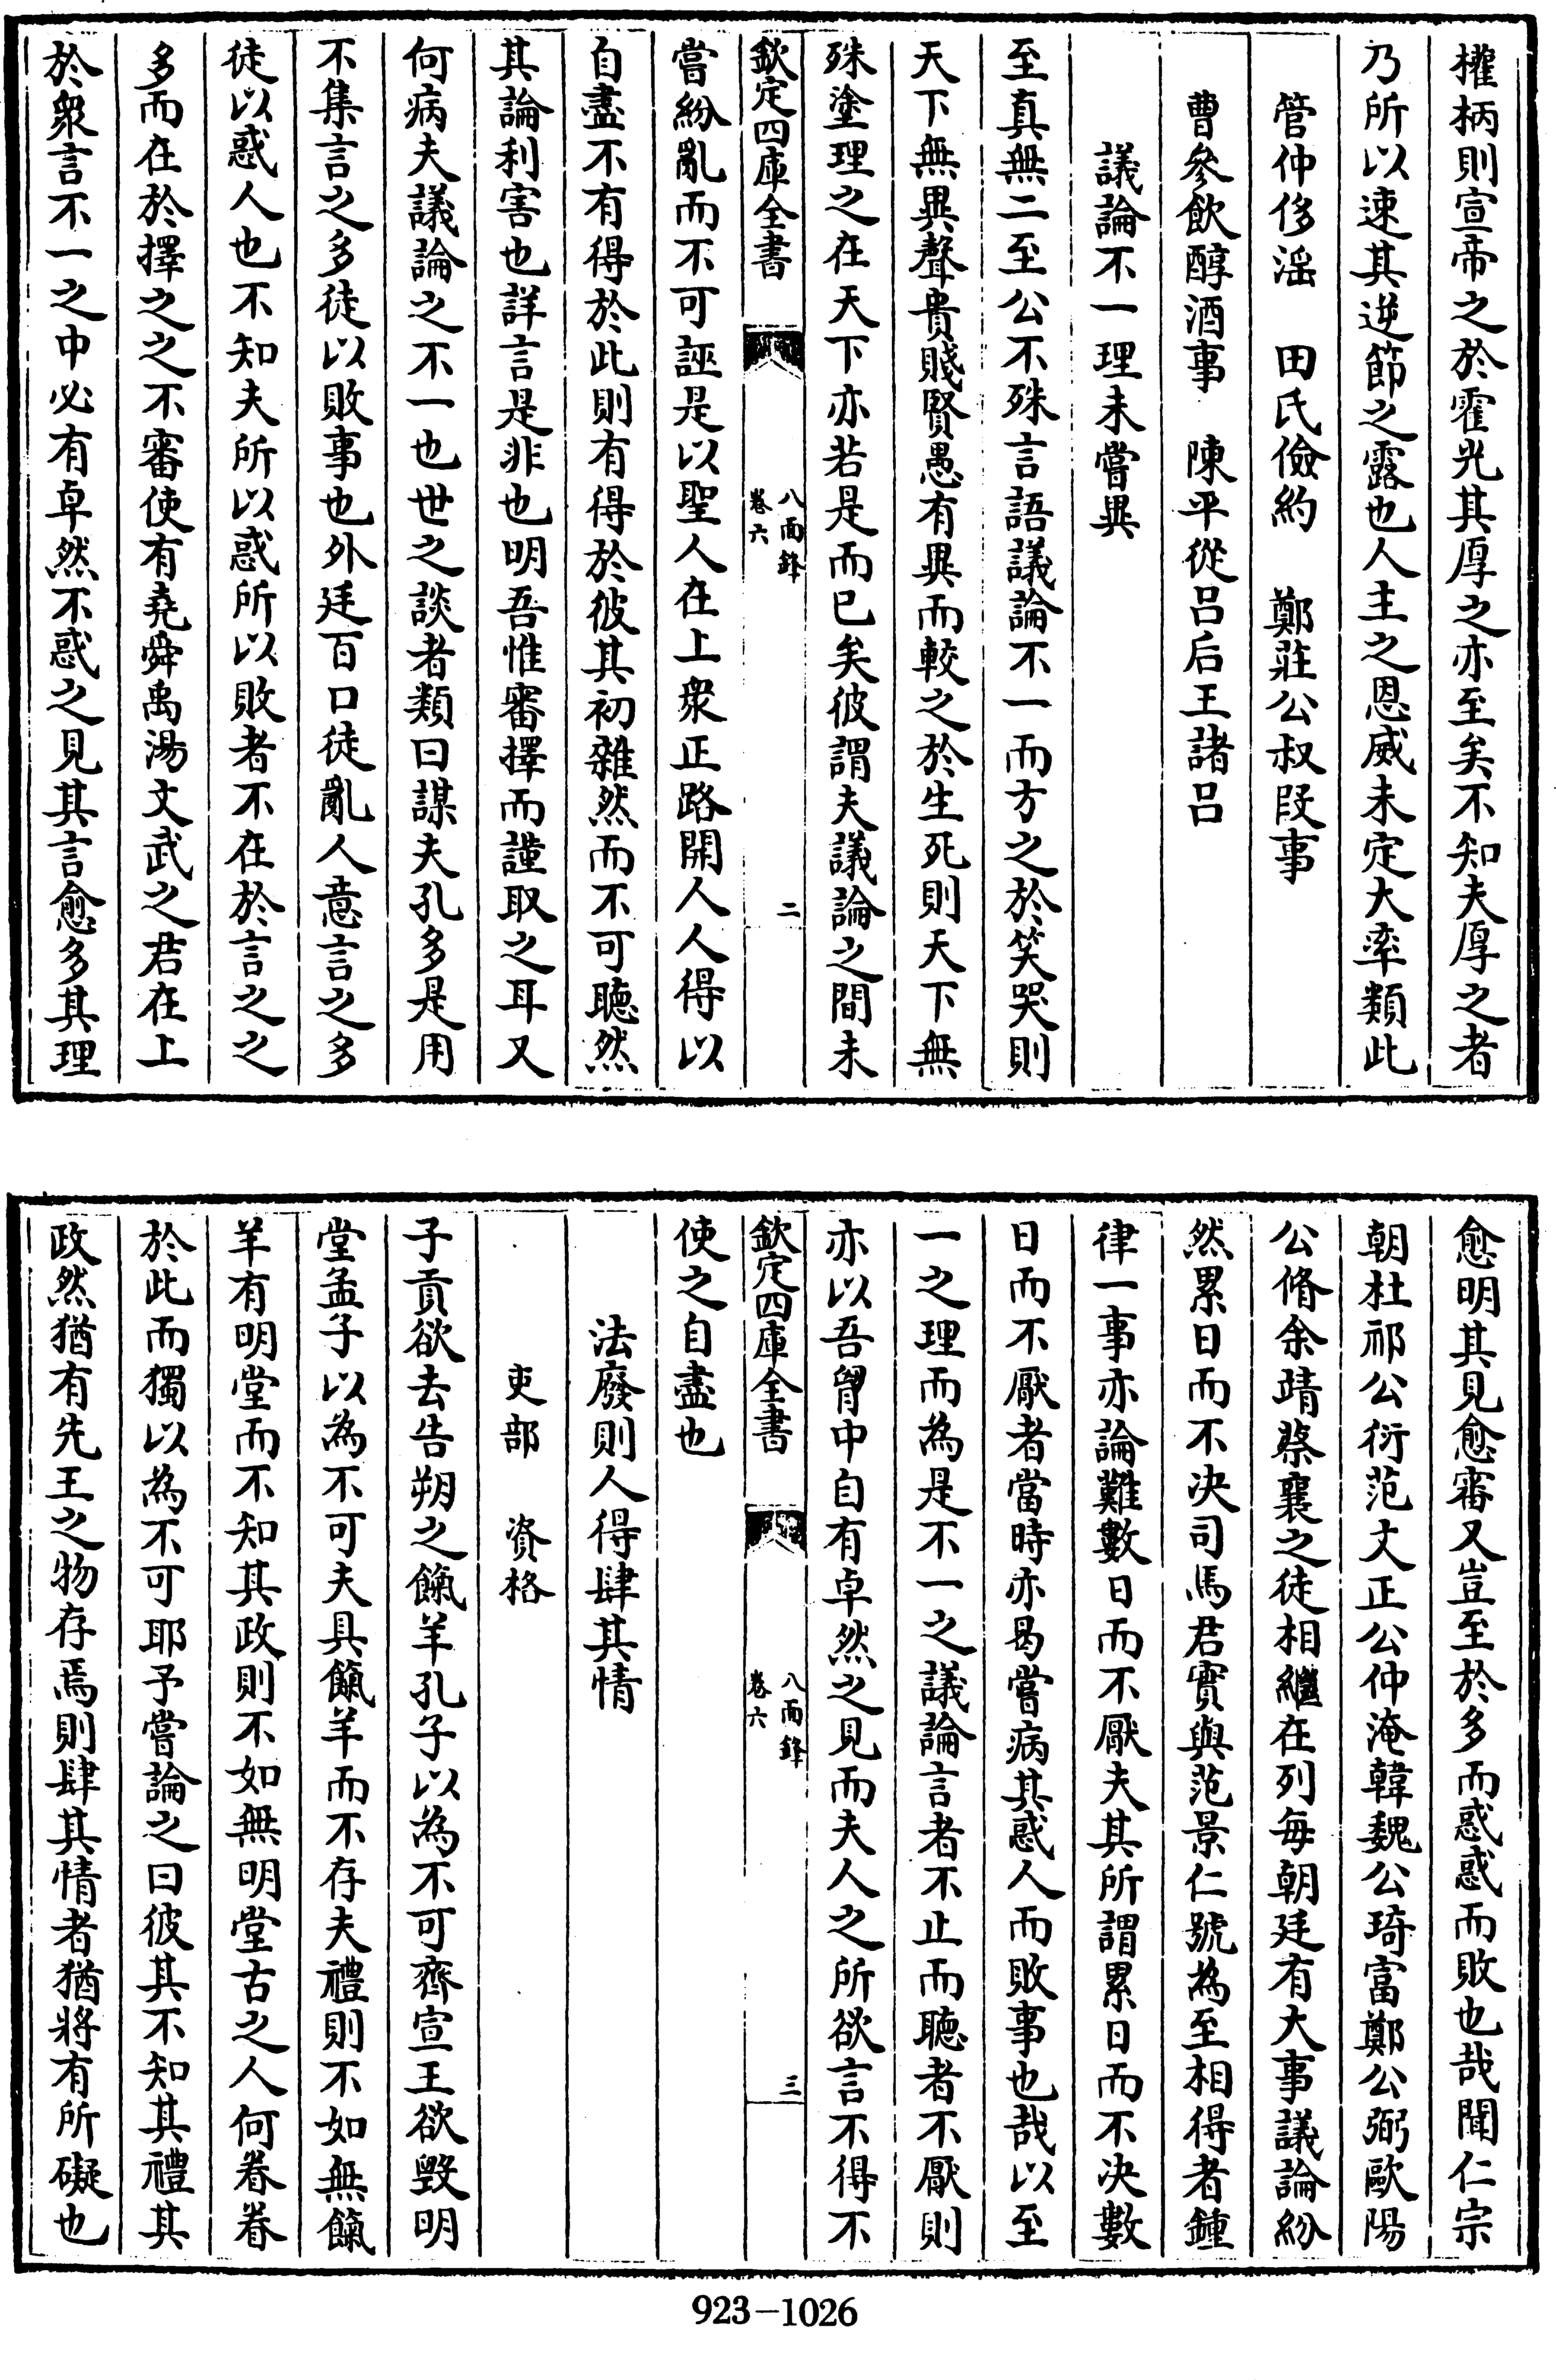 權柄則宣帝之於霍光其厚之亦至矣不知夫厚之者
乃所以速其逆節之露也人主之恩威未定大率類此
管仲侈滛　田氏儉約　鄭莊公叔段事
曹參飲醇酒事　陳平從呂后王諸呂
議論不一理未嘗異
至真無二至公不殊言語議論不一而方之於笑哭則
天下無異聲貴賤賢愚有異而較之於生死則天下無
殊塗理之在天下亦若是而已矣彼謂夫議論之間未
欽定四庫全書
八面鋒
卷六
二
嘗紛亂而不可誣是以聖人在上衆正路開人人得以
自盡不有得於此則有得於彼其初雜然而不可聽然
其論利害也詳言是非也明吾惟審擇而謹取之耳又
何病夫議論之不一也世之談者類曰謀夫孔多是用
不集言之多徒以敗事也外廷百口徒亂人意言之多
徒以惑人也不知夫所以惑所以敗者不在於言之之
多而在於擇之之不審使有堯舜禹湯文武之君在上
於衆言不一之中必有卓然不惑之見其言愈多其理
愈明其見愈審又豈至於多而惑惑而敗也哉聞仁宗
朝杜祁公衍范文正公仲淹韓魏公琦富鄭公弼歐陽
公脩余靖蔡襄之徒相繼在列每朝廷有大事議論紛
然累日而不决司馬君實與范景仁號為至相得者鍾
律一事亦論難數日而不厭夫其所謂累日而不决數
日而不厭者當時亦曷嘗病其惑人而敗事也哉以至
一之理而為是不一之議論言者不止而聽者不厭則
亦以吾胷中自有卓然之見而夫人之所欲言不得不
欽定四庫全書
八面鋒
卷六
三
使之自盡也
法廢則人得肆其情
吏部　資格
子貢欲去告朔之餼羊孔子以為不可齊宣王欲毀明
堂孟子以為不可夫具餼羊而不存夫禮則不如無餼
羊有明堂而不知其政則不如無明堂古之人何眷眷
於此而獨以為不可耶予嘗論之曰彼其不知其禮其
政然猶有先王之物存焉則肆其情者猶將有所礙也
923-1026